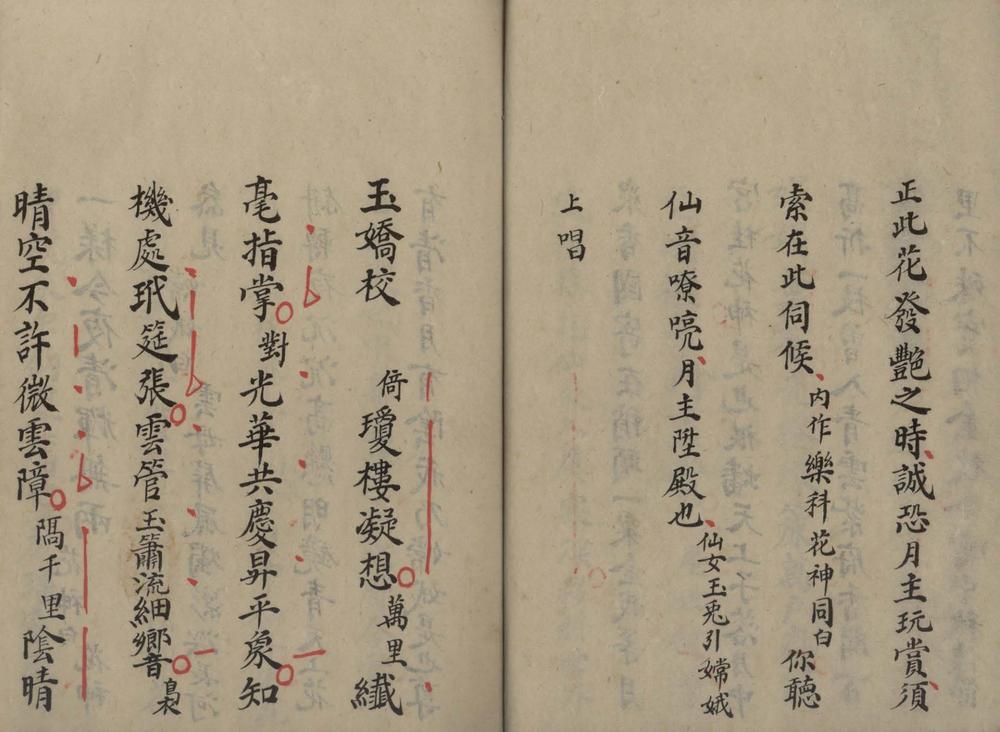 正此花發艷之時誠恐月主玩賞須
索在此伺候內作樂科花神同白你聽
仙音嘹喨月主陞殿也仙女玉兎引嫦娥
上唱
玉嬌枝倚瓊樓凝想萬里纖
毫指掌對光華共慶昇平象知
機處玳筵張雲管玉簫流細響裊
晴空不許微雲障隔千里陰晴